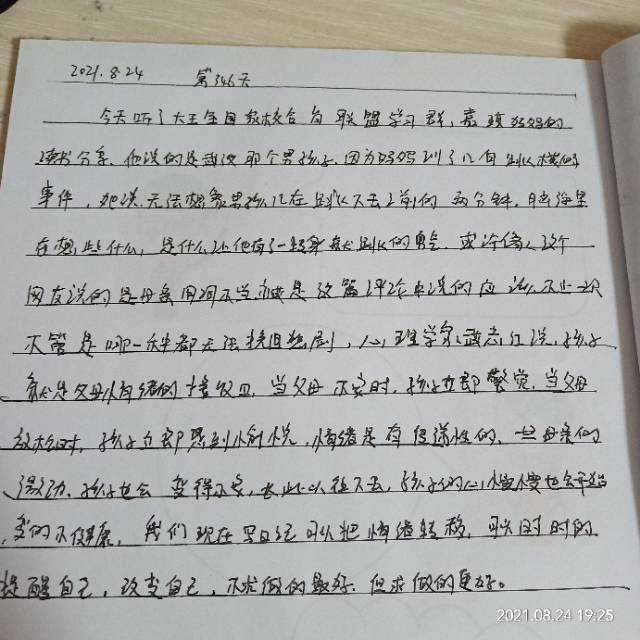 2021.8.24 第346天
今天听了大王全国数校合自联盟学习群,嘉琪妈妈的
读书分享,他说的是武汉那个男孩子,因为妈妈训了几句跳楼的
事件,她说,无法想象男孩儿在跳下去之前的两分钟,脑海里
在想些什么,是什么让他有了一转身就跳的勇气,我许信
网友说的是母亲用词不当,就是这篇评论中说的应该不止一次
不管是哪一种都无法挽回悲剧,心理学家武志红说,孩子
就是父母情绪的接收皿,当父母不安时,孩子立即警觉,当父母
放松时,孩子立即感到愉悦,情绪是有传递性的,母亲的
激动,孩子也会变得不安,长此以往下去,孩子的心慢慢也会开始
变的不健康,我们现在写日记可以把情绪转移,可以时时的
提醒自己,改变自己,不求做的最好,但求做的更好。
2021.08.24 19:25